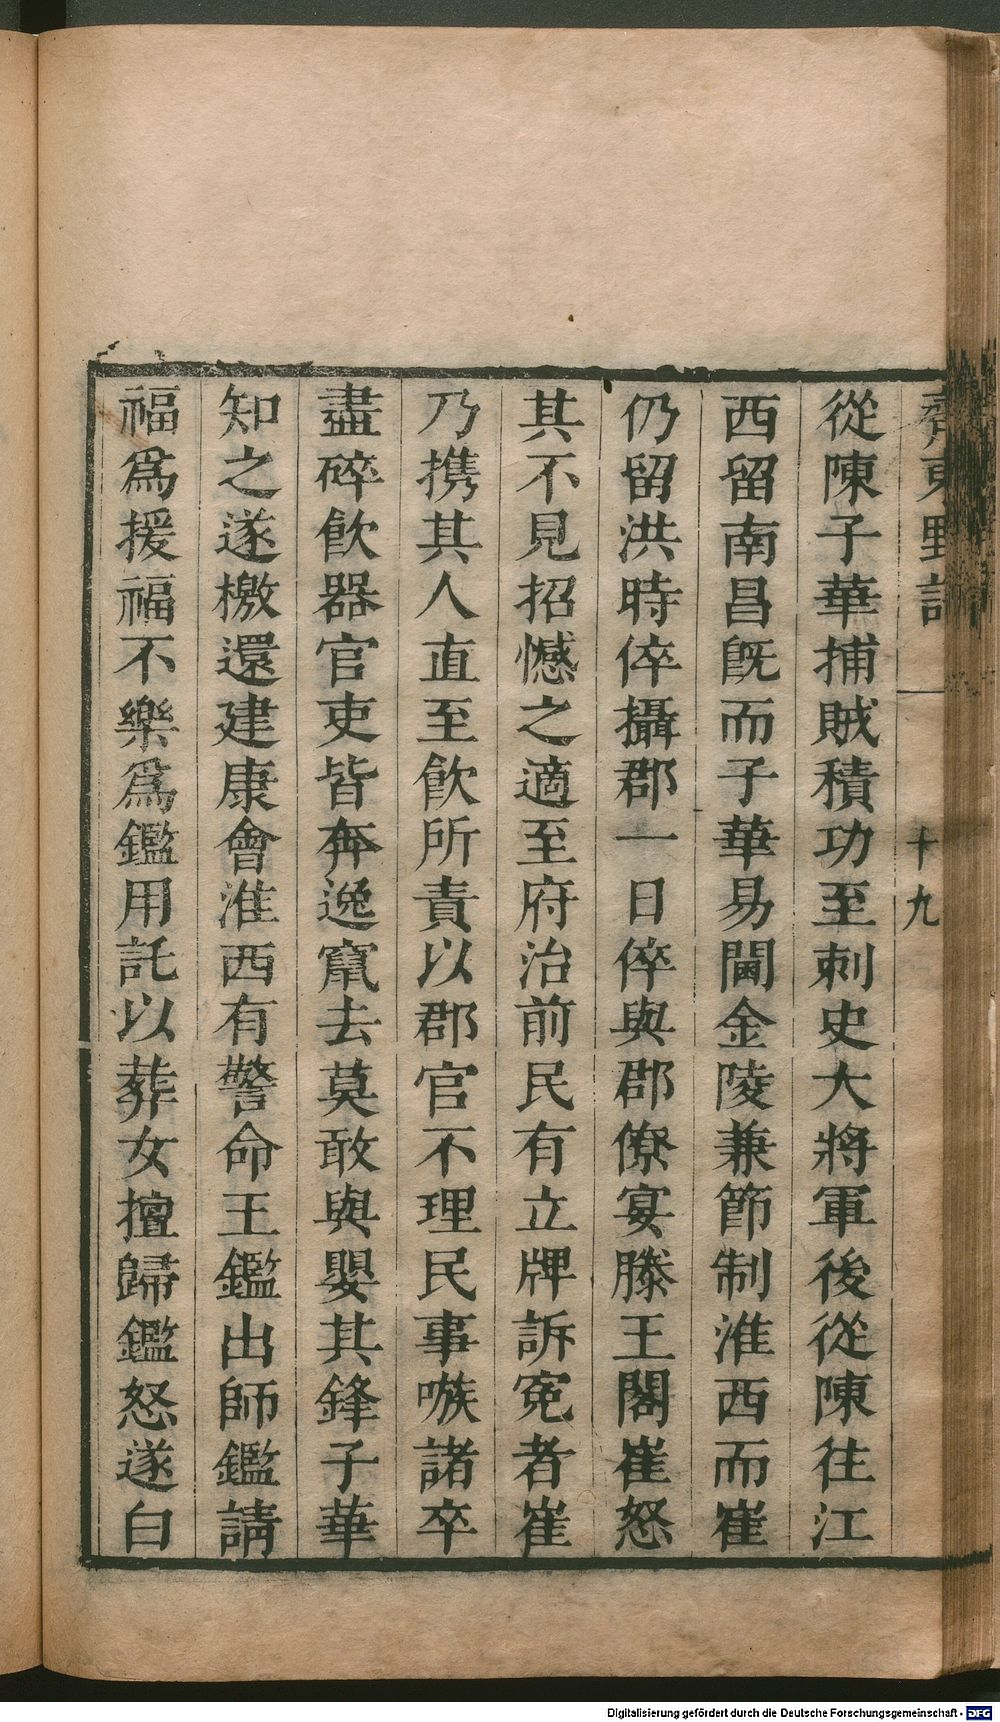 齊東野語
十九
從陳子華捕賊積功至刺史大將軍後從陳往江
西留南昌旣而子華易閫金陵兼節制淮西而崔
仍留洪時倅攝郡一日倅與郡僚宴滕王閣崔怒
其不見招憾之適至府治前民有立牌訴寃者崔
乃携其人直至飮所責以郡官不理民事嗾諸卒
盡碎飮器官吏皆奔逸竄去莫敢與嬰其鋒子華
知之遂檄還建康會淮西有警命王鑑出師鑑請
福爲援福不樂爲鑑用託以葬女擅歸鑑怒遂白
Digitalisierung gefördert durch die Deutsche Forschungsgemeinschaft - DFG